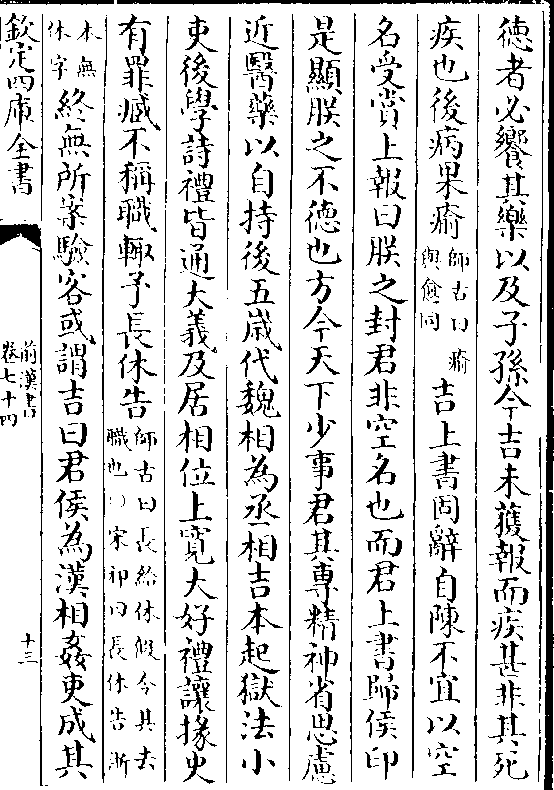 德者必饗其樂以及子孫今吉未獲報而疾甚非其死
疾也後病果瘉師古曰瘉與愈同吉上書固辭自陳不宜以空
名受賞上報曰朕之封君非空名也而君上書歸侯印
是顯朕之不德也方今天下少事君其專精神省思慮
近醫藥以自持後五歳代魏相為丞相吉本起獄法小
吏後學詩禮皆通大義及居相位上寛大好禮讓掾史
有罪臧不稱職輒予長休告師古曰長給休假令其去職也○宋祁曰長休告浙
本無休字終無所案驗客或謂吉曰君侯為漢相姦吏成其
欽定四庫全書
前漢書
卷七十四
十三